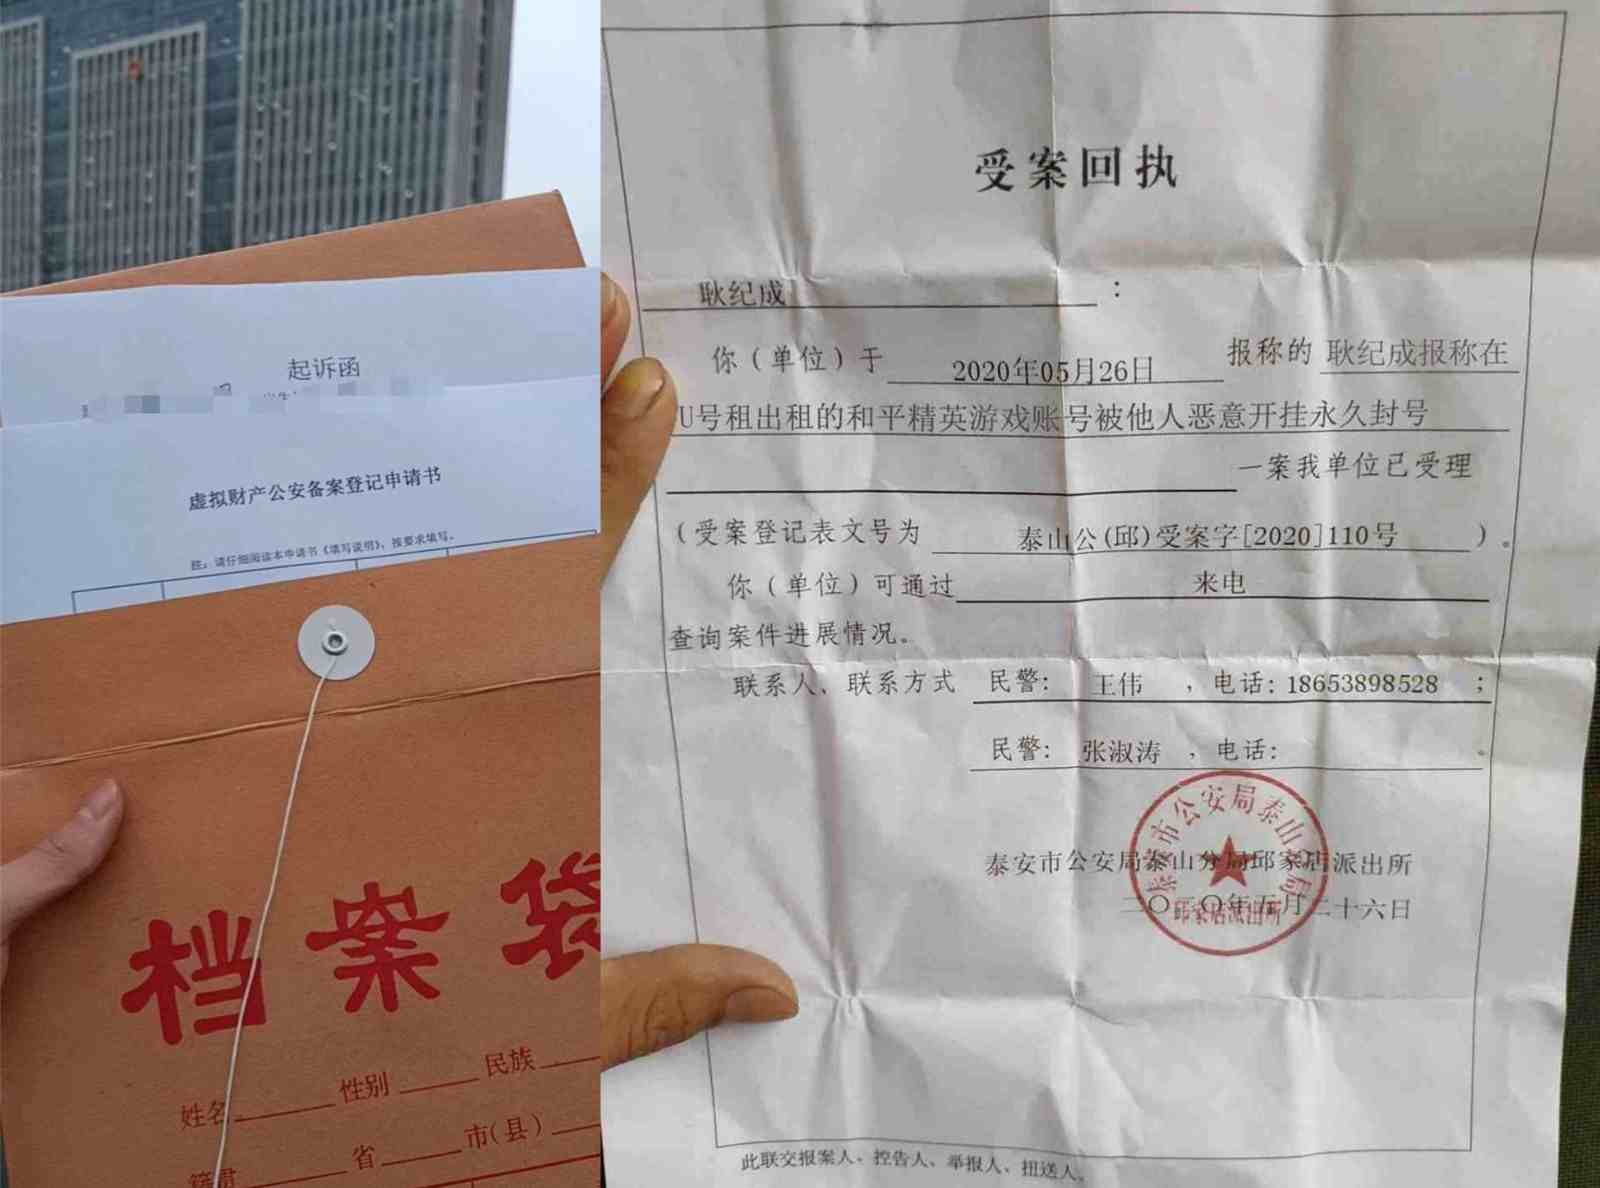 起诉函
虚拟财产公安备案登记申请书
注：请仔细阅读本申请书《填写说明》，按要求填写。
档案袋
姓名 性别 民族
籍贯 省 市(县)
受案回执
耿纪成 ：
你（单位）于 2020年05月26日 报称的 耿纪成报称在
U号租出租的和平精英游戏账号被他人恶意开挂永久封号
一案我单位已受理
（受案登记表文号为 泰山公(邱)受案字[2020]110号 ）。
你（单位）可通过 来电
查询案件进展情况。
联系人、联系方式 民警： 王伟 ，电话：18653898528 ；
民警： 张淑涛 ，电话： 。
泰安市公安局泰山分局邱家店派出所
二〇二〇年五月二十六日
泰安市公安局泰山分局
邱家店派出所
此联交报案人、控告人、举报人、扭送人。